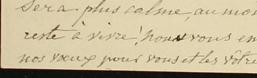 sera plus calme, au mo
reste à vivre, nous vous en
nos vœux pour vous et les vôtre